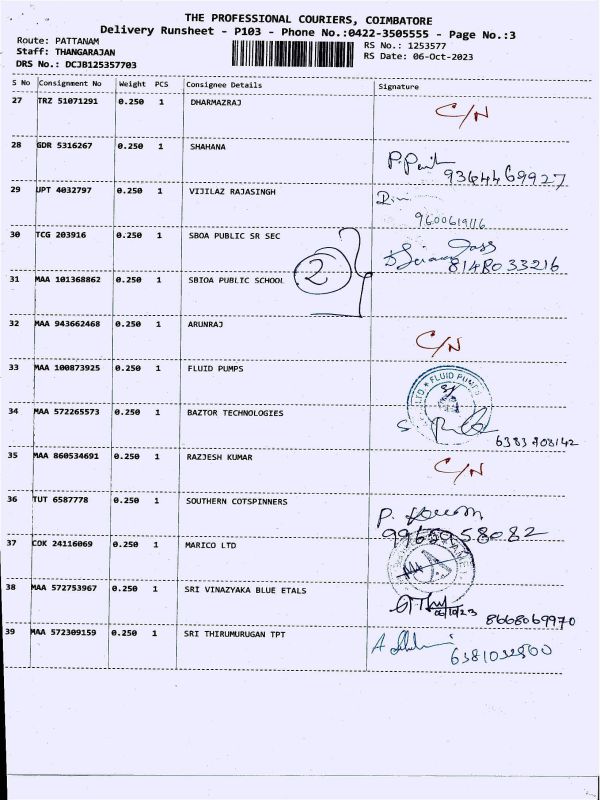 THE PROFESSIONAL COURIERS, COIMBATORE
Delivery Runsheet - P103 - Phone No.:0422-3505555 - Page No.:3
Route: PATTANAM
Staff: THANGARAJAN
DRS No.: DCJB125357703
RS No.: 1253577
RS Date: 06-Oct-2023
S No Consignment No Weight PCS Consignee Details Signature
27 TRZ 51071291 0.250 1 DHARMAZRAJ C/N
28 GDR 5316267 0.250 1 SHAHANA
9364469927
29 UPT 4032797 0.250 1 VIJILAZ RAJASINGH
9600619116
30 TCG 203916 0.250 1 SBOA PUBLIC SR SEC
8148033216
2
31 MAA 101368862 0.250 1 SBIOA PUBLIC SCHOOL
32 MAA 943662468 0.250 1 ARUNRAJ C/N
33 MAA 100873925 0.250 1 FLUID PUMPS
FLUID PUMPS
34 MAA 572265573 0.250 1 BAZTOR TECHNOLOGIES
6383708142
35 MAA 860534691 0.250 1 RAZJESH KUMAR C/N
36 TUT 6587778 0.250 1 SOUTHERN COTSPINNERS
9965958082
37 COK 24116069 0.250 1 MARICO LTD
38 MAA 572753967 0.250 1 SRI VINAZYAKA BLUE ETALS
06/10/23
8668069970
39 MAA 572309159 0.250 1 SRI THIRUMURUGAN TPT